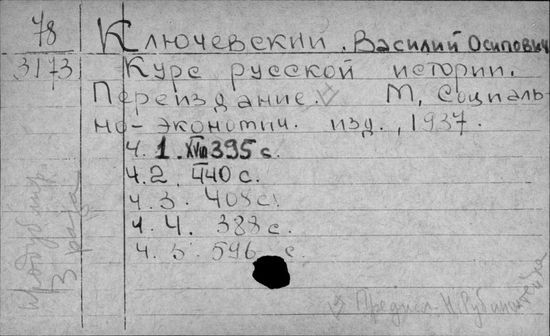 78
3173
Ключевский. Василий Осипович
Курс русской истории.
Переиздание. М, Социаль-
но-экономич. изд., 1937.
ч. 1. XVIII 395 с.
ч. 2. 440 с.
ч. 3. 408 с.
ч. 4. 388 с.
ч. 5. 596 с.
Предисл. Н. Рубинштейна